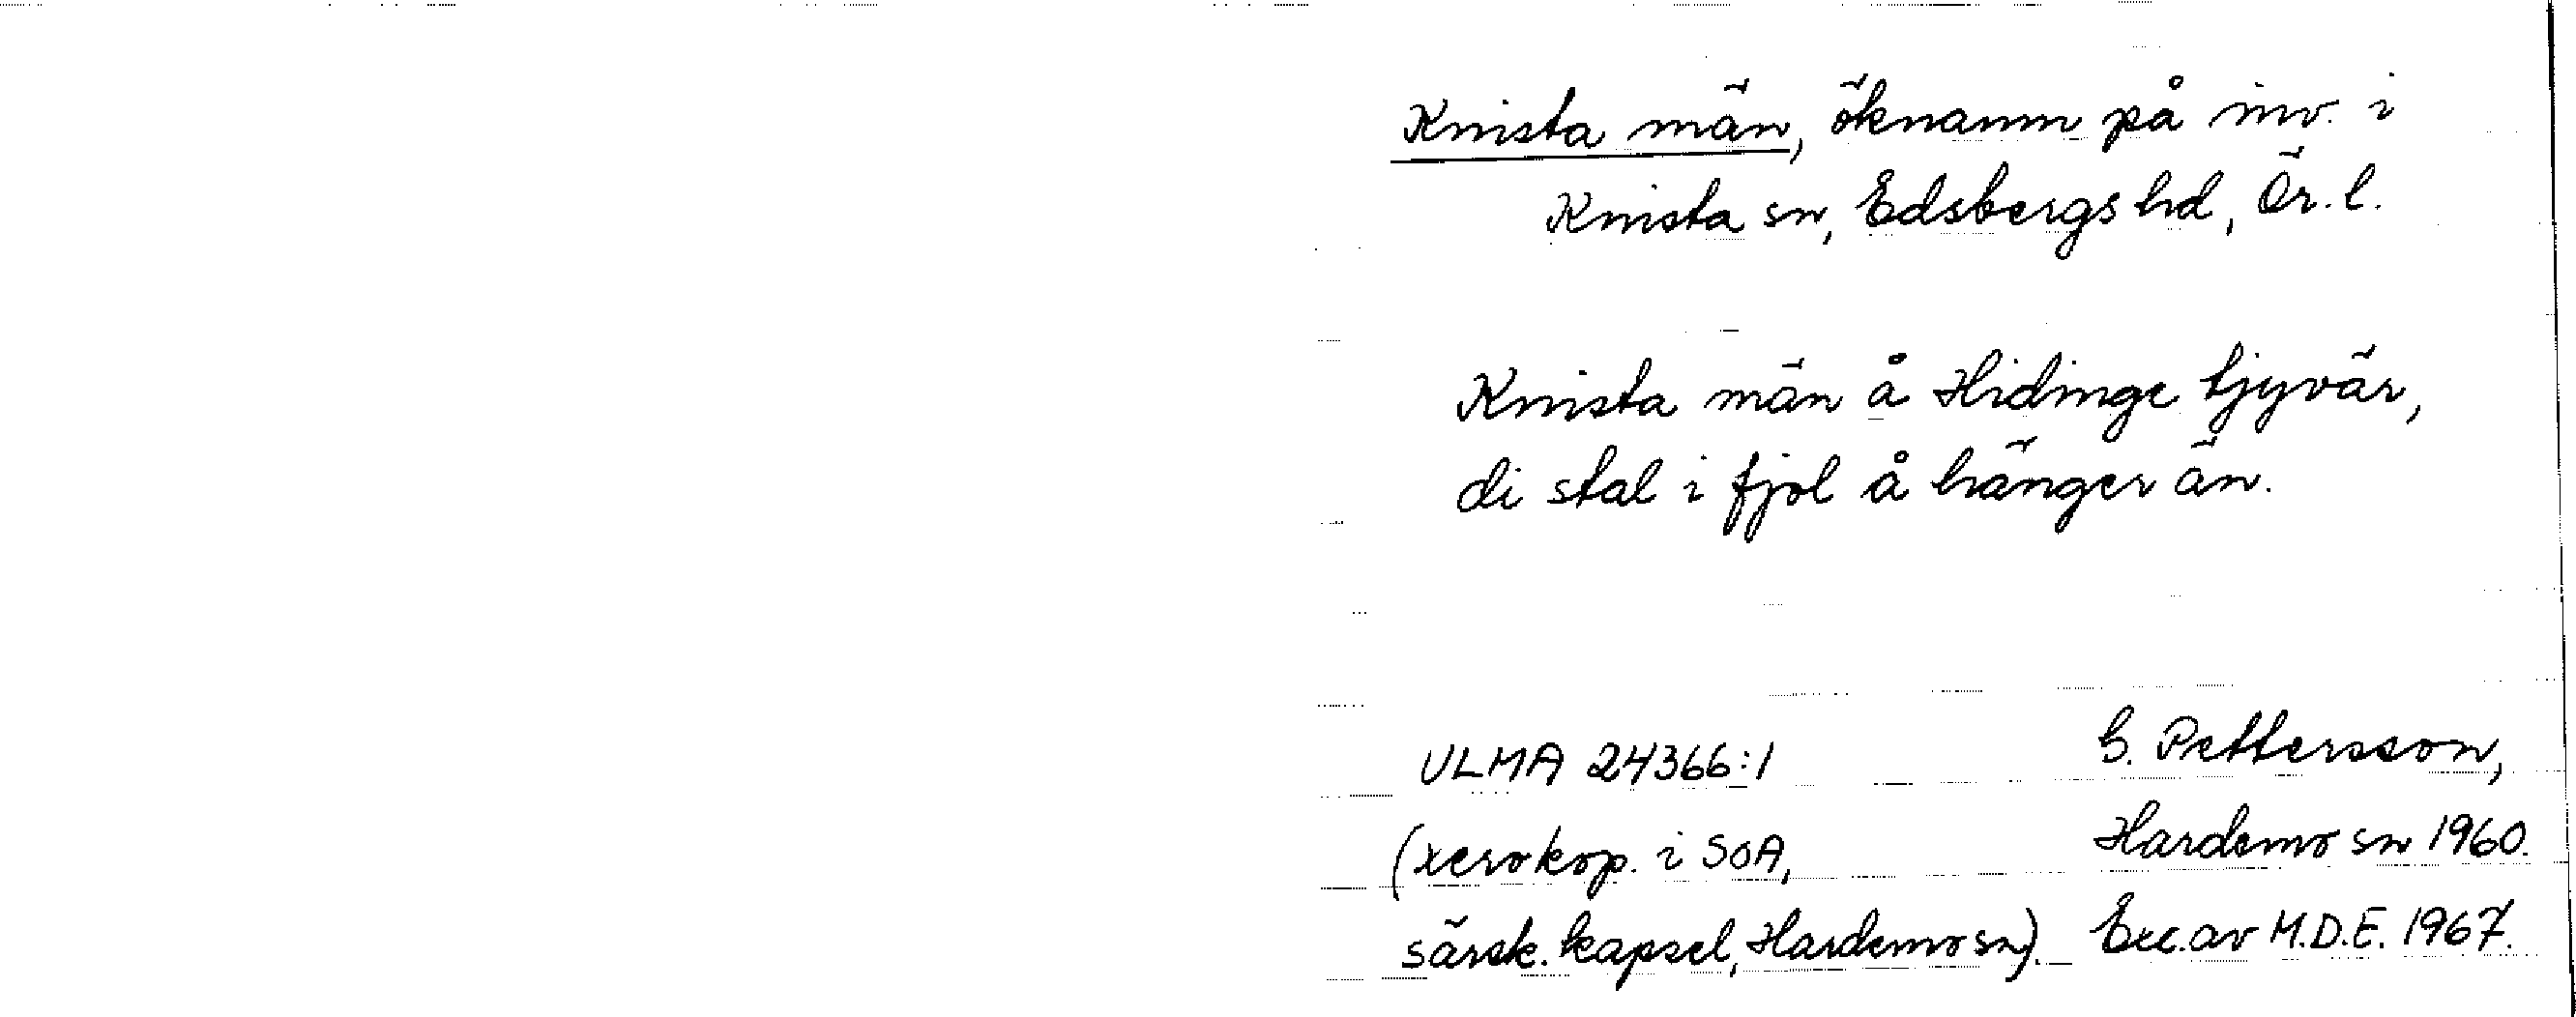 Knista män, öknamn på inv. i
Knista sn, Edsbergs hd, Ör. l.
Knista män å Hidinge tjyvär,
di stal i fjol å hänger än.
ULMA 24366:1
G. Pettersson,
(xerokop. i SOA,
Hardemo sn 1960.
särsk. kapsel, Hardemo sn).
Exc. av M.D.E. 1967.